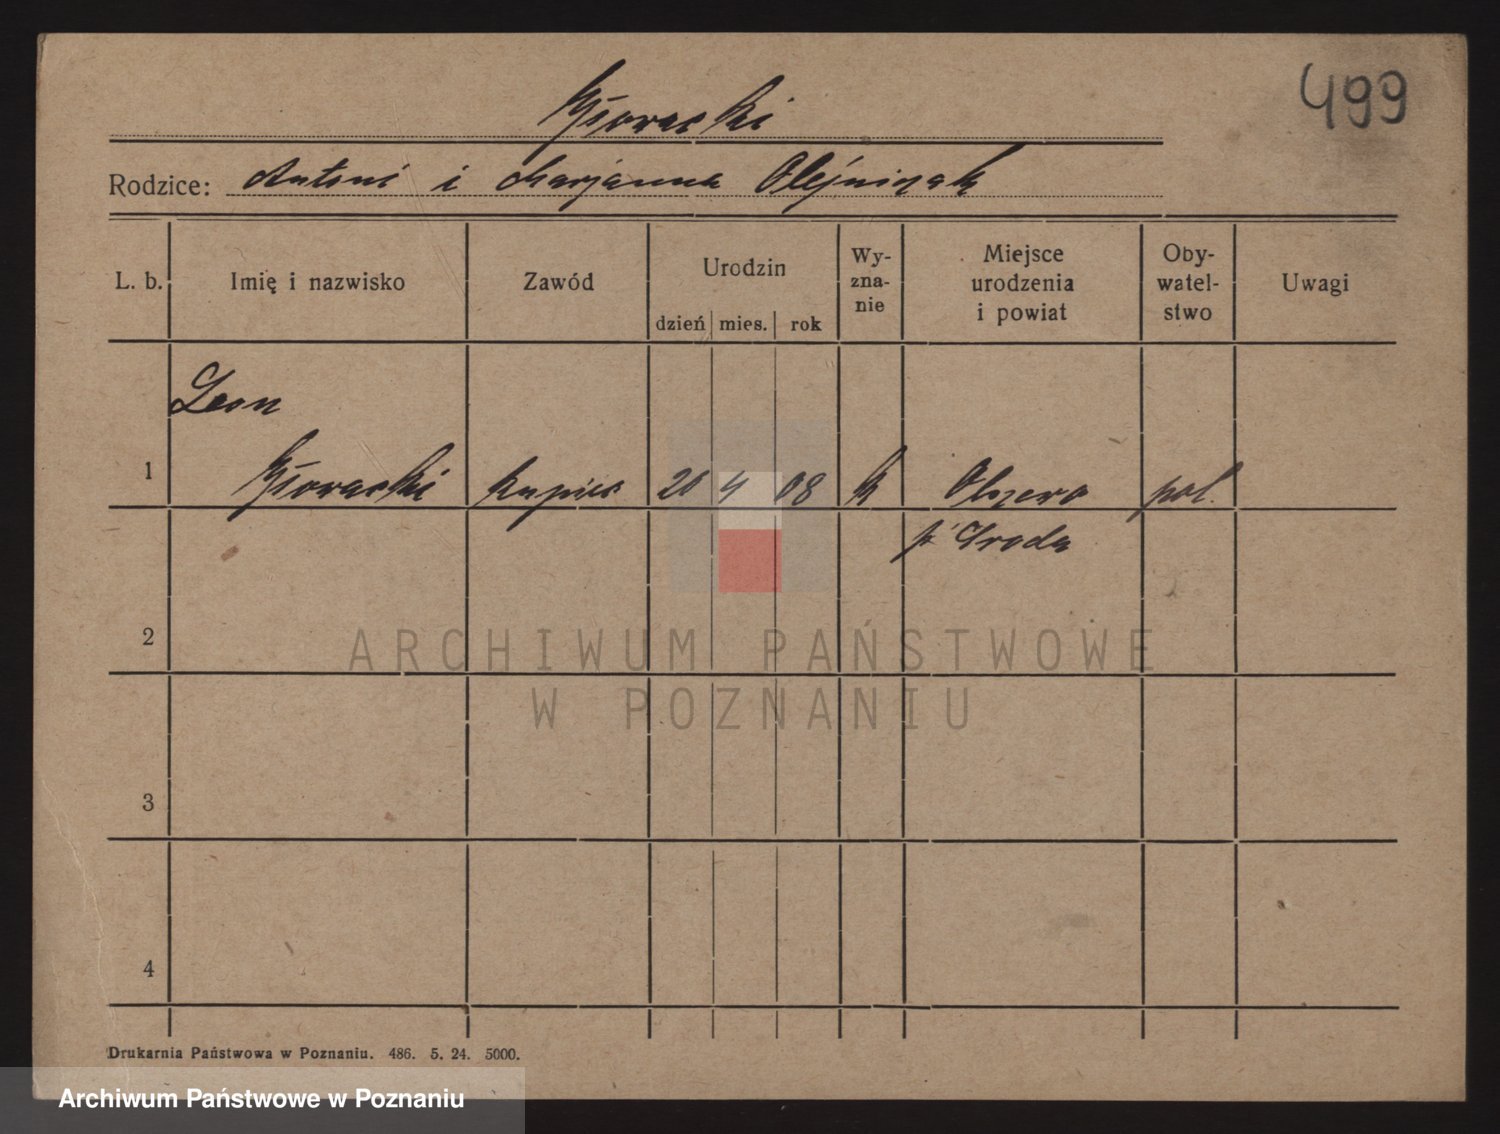 499
Rodzice: Antoni i Marjanna Olejniczak
L. b. Imię i nazwisko Zawód Urodzin dzień mies. rok Wy-zna-nie Miejsce urodzenia i powiat Oby-watel-stwo Uwagi
Leon
1 kupiec 20 4 08 k pol.
p. Środa
2
ARCHIWUM PAŃSTWOWE
W POZNANIU
3
4
Drukarnia Państwowa w Poznaniu. 486. 5. 24. 5000.
Archiwum Państwowe w Poznaniu